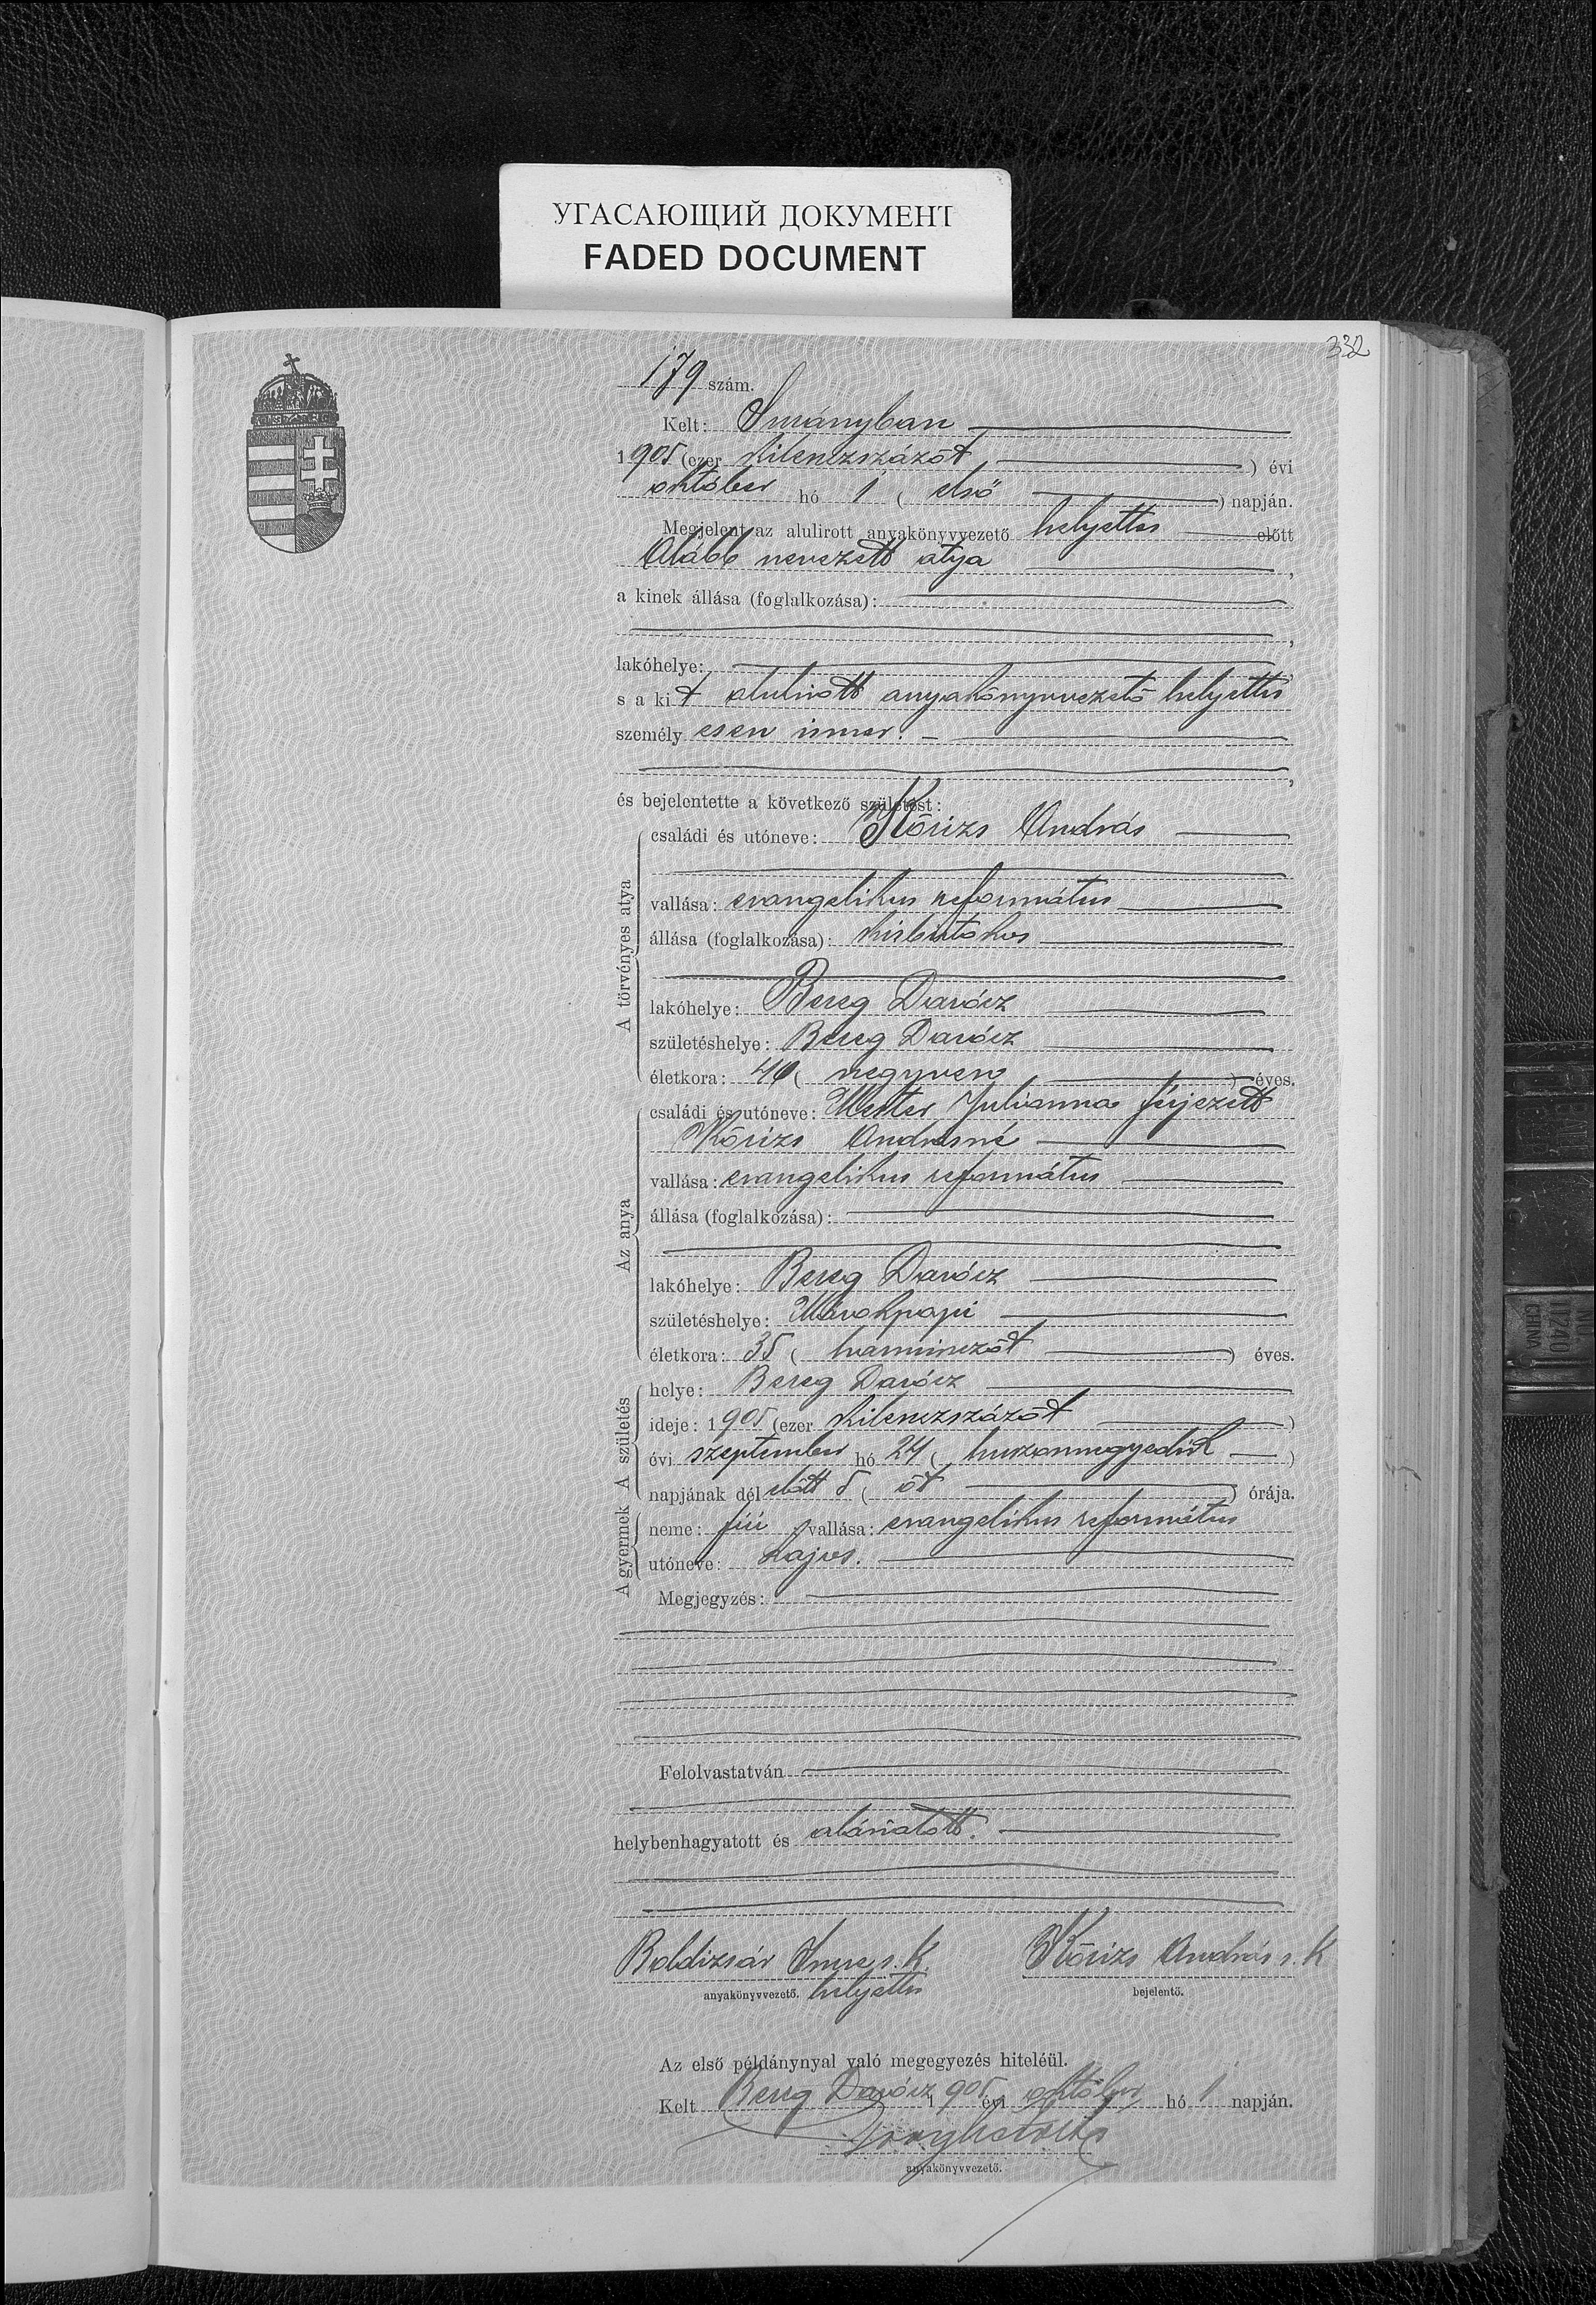 УГАСАЮЩИЙ ДОКУМЕНТ
FADED DOCUMENT
332
179 szám.
Kelt: Surányban
1905 (ezer kilenczszázöt) évi
október hó 1 (első) napján.
Megjelent az alulirott anyakönyvvezető helyettes előtt
Alább nevezett atya,
a kinek állása (foglalkozása):
lakóhelye:
s a kit alulirott anyakönyvvezető helyettes
személyesen ismer. –
és bejelentette a következő születést:
A törvényes atya
családi és utóneve: Kőrizs András
vallása: evangelikus református
állása (foglalkozása): kisbirtokos
lakóhelye: Bereg Darócz
születéshelye: Bereg Darócz
életkora: 40 (negyven) éves.
Az anya
családi és utóneve: Mester Julianna férjezett
Kőrizs Andrásné
vallása: evangelikus református
állása (foglalkozása):
lakóhelye: Bereg Darócz
születéshelye: Márokpapi
életkora: 35 (harminczöt) éves.
A születés
helye: Bereg Darócz
ideje: 1905 (ezer kilenczszázöt)
évi szeptember hó 24 (huszonnegyedik)
napjának dél előtt 5 (öt) órája.
A gyermek
neme: fiú vallása: evangelikus református
utóneve: Lajos.
Megjegyzés:
Felolvastatván
helybenhagyatott és aláíratott.
Boldizsár Imre s. k. Kőrizs András s. k
anyakönyvvezető. helyettes bejelentő.
Az első példánynyal való megegyezés hiteléül.
Kelt Bereg Darócz 1905 évi október hó 1 napján.
anyakönyvvezető.